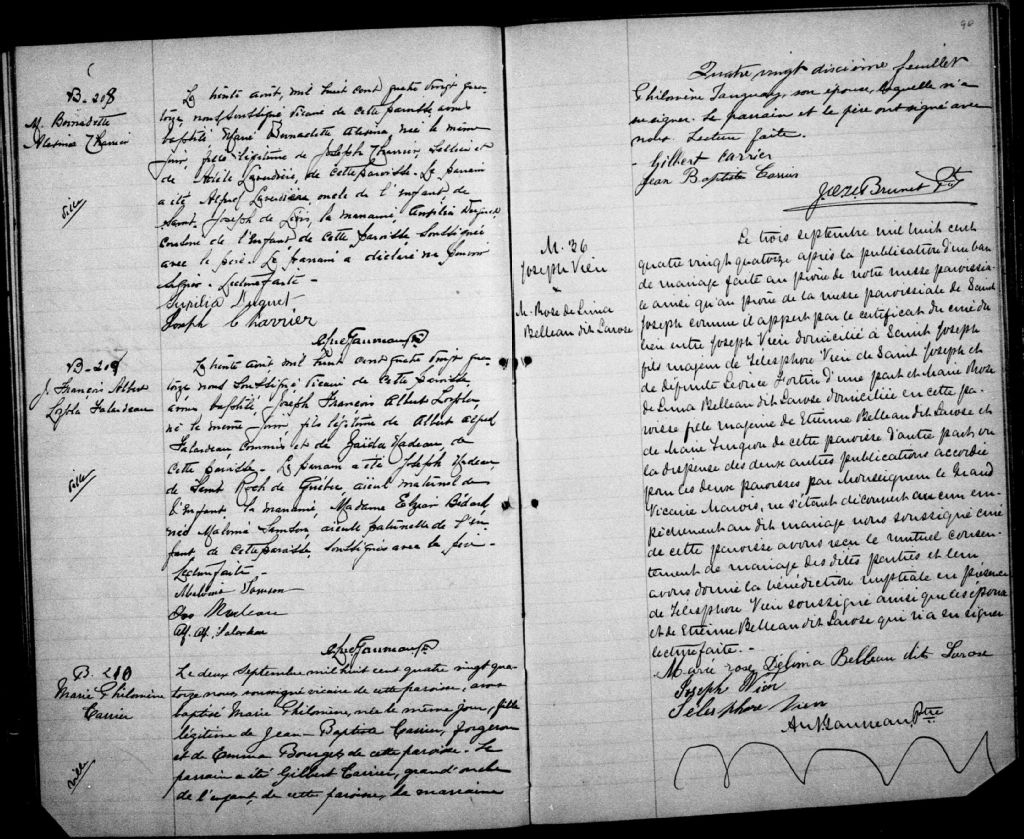 B-208
M. Bernadette
Alesina Charrier
Ville
Le trente août, mil huit cent quatre vingt qua-
torze, nous soussigné vicaire de cette paroisse, avons
baptisé Marie Bernadette Alesina, née le même
jour, fille légitime de Joseph Charrier, sellier et
de de cette paroisse. Le parrain
a été Alfred oncle de l'enfant de
Saint Joseph de Lévis, la marraine, Duquet
cousine de l'enfant de cette paroisse soussignée
avec le père. Le parrain a déclaré ne pouvoir
signer. Lecture faite -
Duquet
Joseph Charrier
Ptre
B-209
J. François Albert
Falardeau
Ville
Le trente août, mil huit cent quatre vingt qua-
torze nous soussigné vicaire de cette paroisse,
avons baptisé Joseph François Albert
né le même jour, fils légitime de Albert Alfred
Falardeau, commis et de Nadeau, de
cette paroisse. Le parrain a été Joseph Nadeau,
de Saint Roch de Québec, aïeul maternel de
l'enfant la marraine, Madame Elzéar Bédard
née Malvina Samson, aïeule paternelle de l'en-
fant de cette paroisse, soussignés avec le père -
Lecture faite -
Malvina Samson
Jos Nadeau
Alf. Falardeau
Ptre
B. 210
Marie Philomène
Carrier
Ville
Le deux Septembre mil huit cent quatre vingt qua-
torze nous soussigné vicaire de cette paroisse, avons
baptisé Marie Philomène, née le même jour, fille
légitime de Jean-Baptiste Carrier, forgeron
et de Emma Bourget, de cette paroisse. Le
parrain a été Gilbert Carrier, grand'oncle
de l'enfant, de cette paroisse, la marraine
90
Quatre vingt dixième feuillet
Philomène Tanguay, son épouse, laquelle n'a
su signer. Le parrain et le père ont signé avec
nous. Lecture faite.
- Gilbert Carrier
Jean Baptiste Carrier
Brunet Ptre
M. 36
Joseph Vien
&
M. Rose de Lima
Belleau dit Larose
Le trois septembre mil huit cent
quatre vingt quatorze après la publication d'un ban
de mariage faite au prône de notre messe paroissia-
le ainsi qu'au prône de la messe paroissiale de Saint
Joseph comme il appert par le certificat du curé du
lieu entre Joseph Vien domicilié à Saint Joseph
fils majeur de Télesphore Vien de Saint Joseph et
de défunte Léonce Fortin d'une part et Marie Rose
de Lima Belleau dit Larose domiciliée en cette pa-
roisse fille majeure de Etienne Belleau dit Larose et
de Marie Turgeon de cette paroisse d'autre part, vu
la dispense des deux autres publications accordée
pour les deux paroisses par Monseigneur le Grand
Vicaire Marois, ne s'étant découvert aucun em-
pêchement au dit mariage nous soussigné curé
de cette paroisse avons reçu le mutuel consen-
tement de mariage des dites parties et leur
avons donné la bénédiction nuptiale en présence
de Télesphore Vien soussigné ainsi que les époux
et de Etienne Belleau dit Larose qui n'a su signer
lecture faite. -
Marie rose Délima Belleau dit Larose
Joseph Vien
Télesphore Vien
Gauvreau Ptre